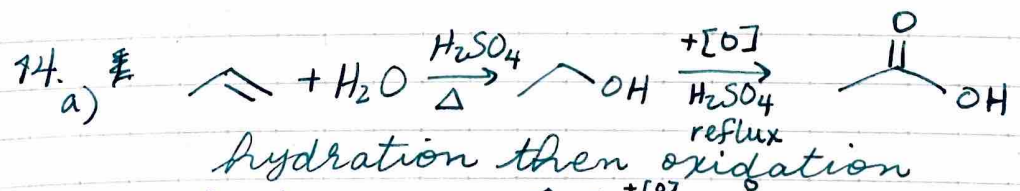 14. a) + H₂O H₂SO₄ Δ OH +[O] H₂SO₄ reflux O OH
hydration then oxidation
+[O]